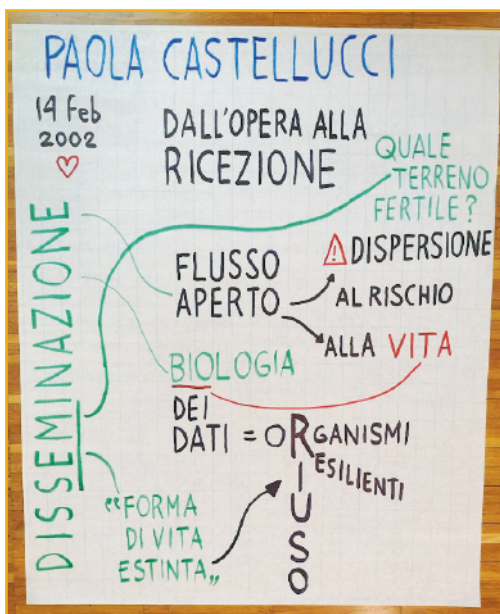 PAOLA CASTELLUCCI
14 Feb
2002
DALL'OPERA ALLA
RICEZIONE
QUALE
TERRENO
FERTILE?
DISSEMINAZIONE
FLUSSO
APERTO
DISPERSIONE
AL RISCHIO
ALLA VITA
BIOLOGIA
DEI
DATI = ORGANISMI
RESILIENTI
RIUSO
“FORMA
DI VITA
ESTINTA„